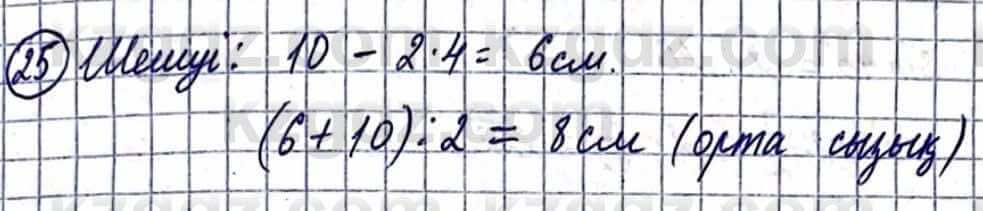 25 Шешуі: 10 - 2·4 = 6см.
(6+10):2 = 8см (орта сызық)